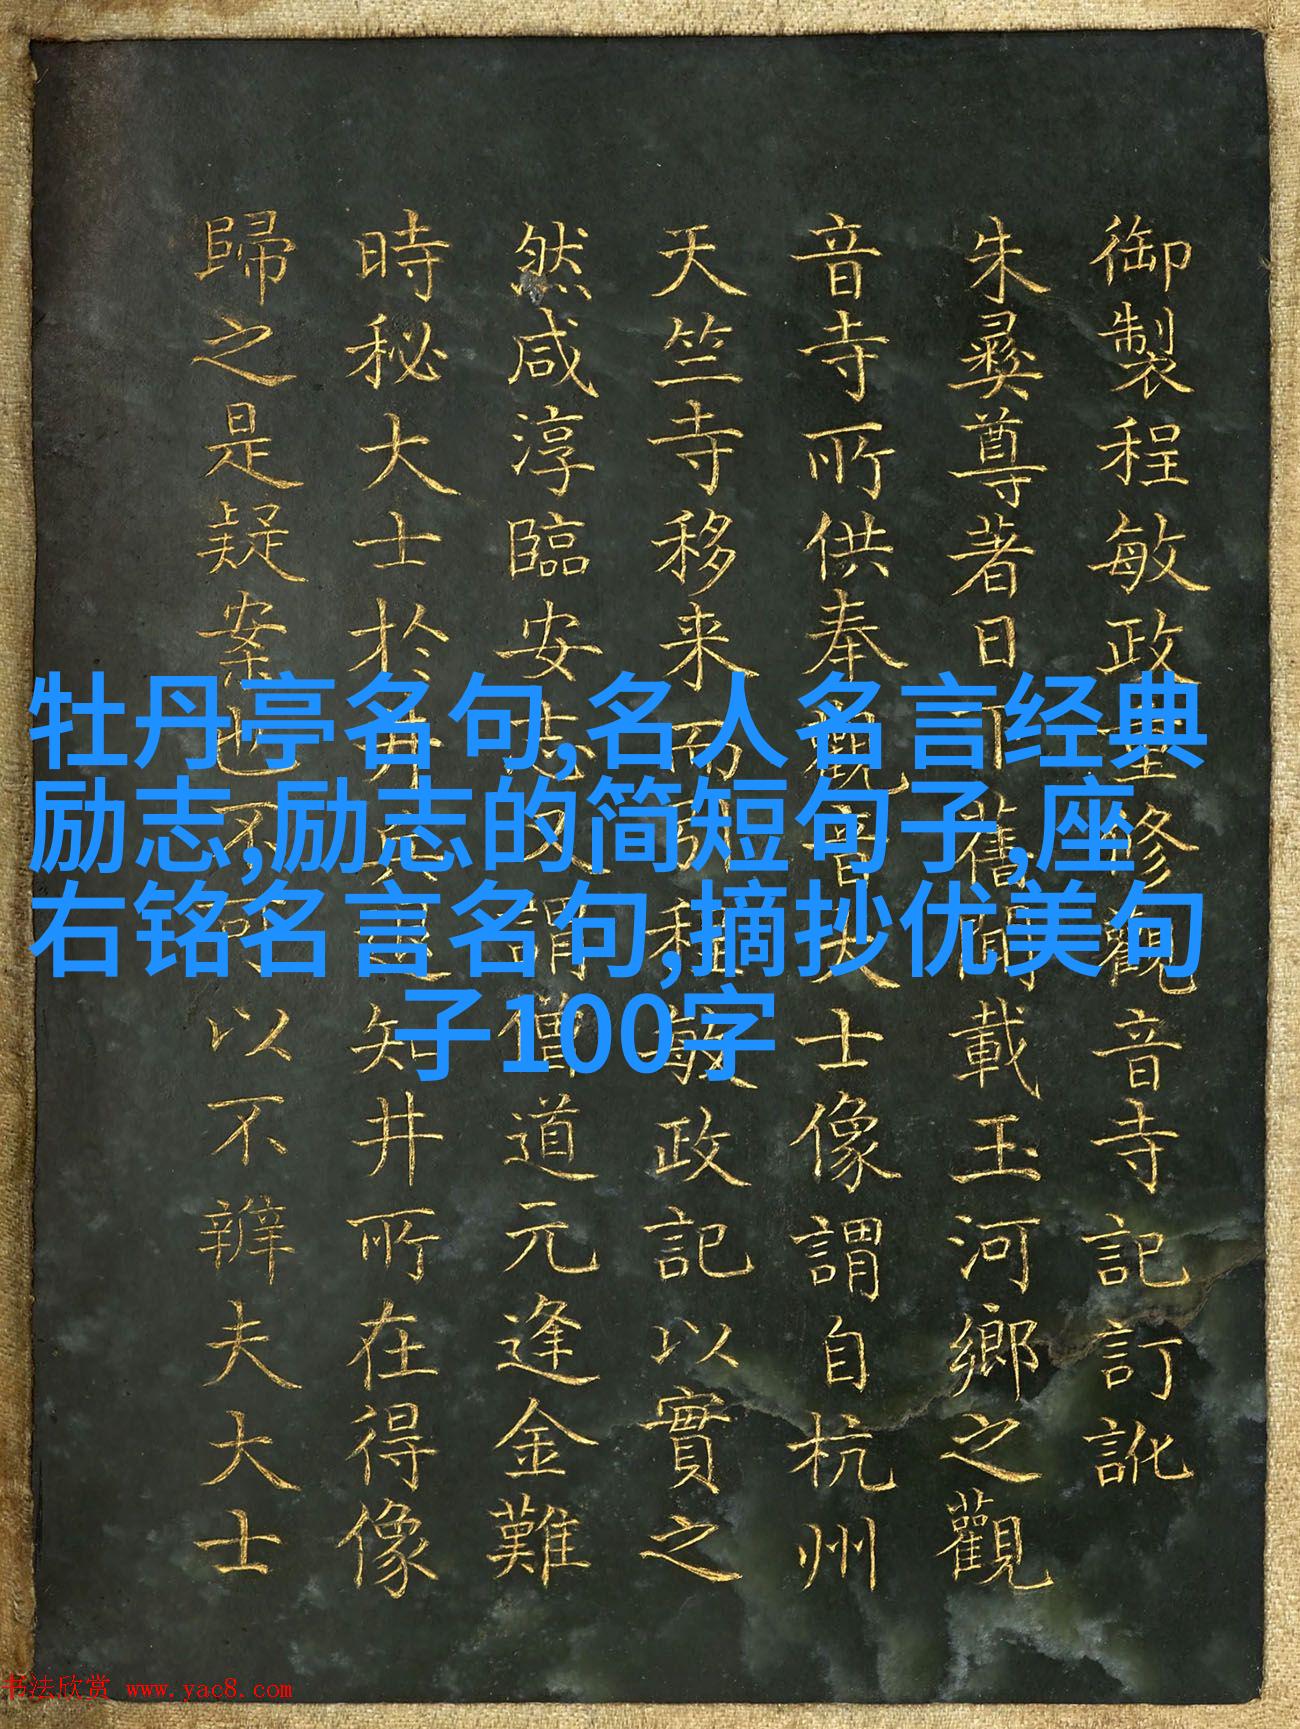 御製程敏政重修觀音寺記訂訛
朱彝尊著日下舊聞載玉河鄉之觀
音寺所供奉觀音大士像謂自杭州
天竺寺移来而程敏政記以實之
然咸淳臨安志又謂僧道元逢金難
時秘大士於井兵知井所在得像
歸之是疑案也不可以不辨夫大士
牡丹亭名句,名人名言经典
励志,励志的简短句子,座
右铭名言名句,摘抄优美句
子100字
书法欣赏 www.yac8.com